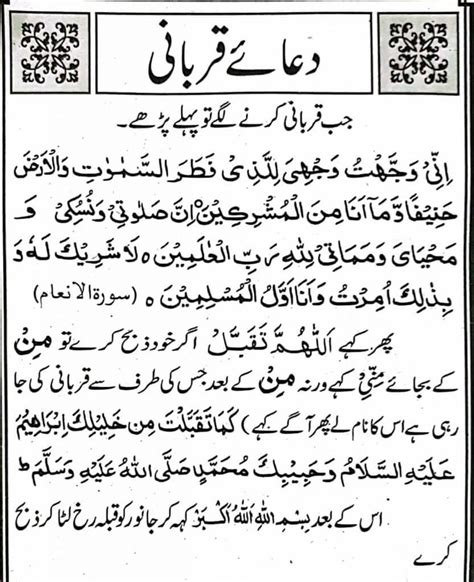 دعائے قربانی
جب قربانی کرنے لگے تو پہلے پڑھے۔
اِنِّیْ وَجَّهْتُ وَجْهِیَ لِلَّذِیْ فَطَرَ السَّمٰوٰتِ وَالْاَرْضَ
حَنِیْفًا وَّمَآ اَنَا مِنَ الْمُشْرِکِیْنَ ٥ اِنَّ صَلٰوتِیْ وَنُسُکِیْ وَ
مَحْیَایَ وَمَمَاتِیْ لِلّٰهِ رَبِّ الْعٰلَمِیْنَ ٥ لَا شَرِیْكَ لَهٗ وَ
بِذٰلِكَ اُمِرْتُ وَاَنَا اَوَّلُ الْمُسْلِمِیْنَ ٥ (سورۃ الانعام)
پھر کہے اَللّٰهُمَّ تَقَبَّلْ اگر خود ذبح کرے تو مِنْ
کے بجائے مِنِّیْ کہے ورنہ مِنْ کے بعد جس کی طرف سے قربانی کی جا
رہی ہے اس کا نام لے پھر آگے کہے) کَمَا تَقَبَّلْتَ مِن خَلِیْلِكَ اِبْرَاهِیْمَ
عَلَیْهِ السَّلَامُ وَحَبِیْبِكَ مُحَمَّدٍ صَلَّی اللهُ عَلَیْهِ وَسَلَّمَ ط
اس کے بعد بِسْمِ اللهِ اَللهُ اَکْبَرُ کہہ کر جانور کو قبلہ رخ لٹا کر ذبح
کرے